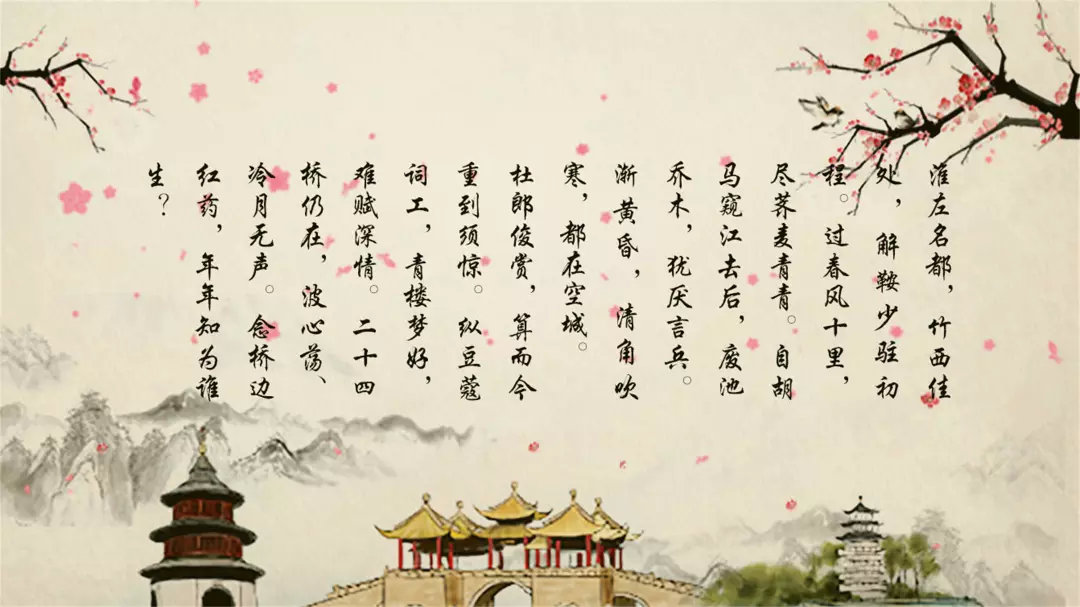 淮左名都，竹西佳
处，解鞍少驻初
程。过春风十里，
尽荠麦青青。自胡
马窥江去后，废池
乔木，犹厌言兵。
渐黄昏，清角吹
寒，都在空城。
杜郎俊赏，算而今
重到须惊。纵豆蔻
词工，青楼梦好，
难赋深情。二十四
桥仍在，波心荡、
冷月无声。念桥边
红药，年年知为谁
生？